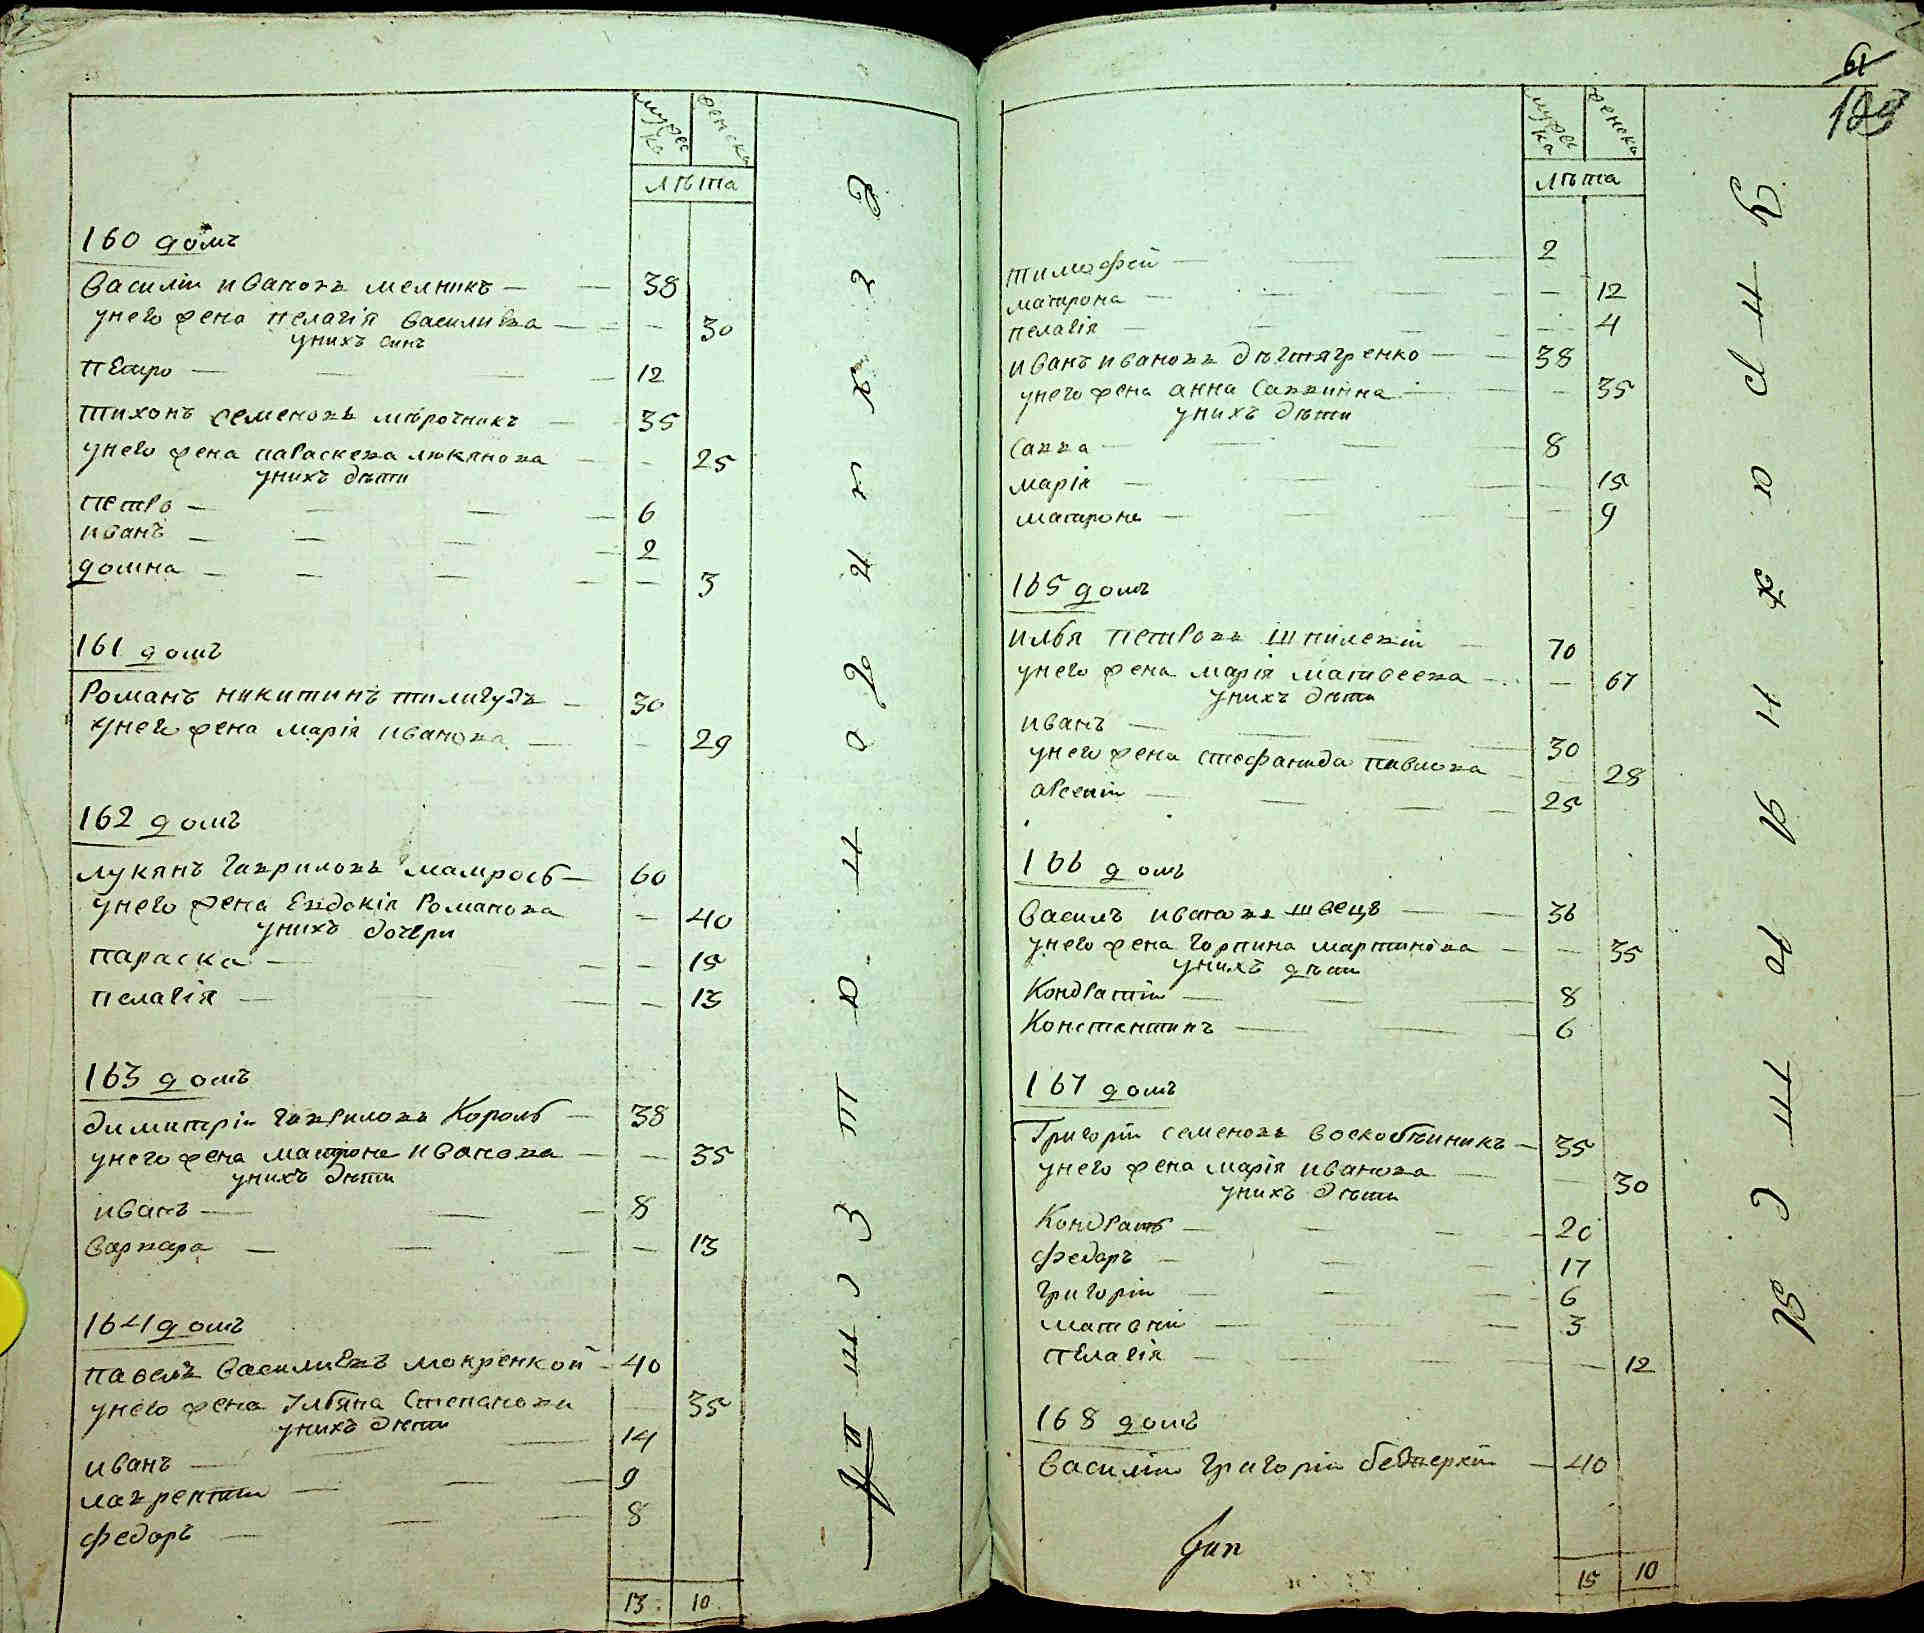 мужеска женска
лѣта
160 домъ
Василіи Ивановъ мелникъ — 38
унего жена пелагія василиева — 30
унихъ синъ
петро — 12
тихонъ семеновъ мѣрочникъ — 35
унего жена параскева люкянова — 25
унихъ дѣти
петро — 6
иванъ — 2
домна — 3
161 домъ
Романъ никитинъ тилигузъ — 30
унего жена марія иванова — 29
162 домъ
лукянъ гавриловъ мамрось — 60
унего жена Евдокія Романова — 40
унихъ дочери
параска — 15
пелагія — 13
163 домъ
димитріи гавриловъ Король — 38
унего жена матрона иванова — 35
унихъ дѣти
иванъ — 8
варвара — 13
164 домъ
павелъ василиевъ мокренкой — 40
унего жена Ульяна Степанова — 35
унихъ дѣти
иванъ — 14
лаврентіи — 9
федоръ — 8
13 10
61
мужеска женска
лѣта
тимофей — 2
матрона — 12
пелагія — 4
иванъ ивановъ дѣгтяренко — 38
унего жена анна саввина — 35
унихъ дѣти
савва — 8
марія — 15
матрона — 9
165 домъ
илья петровъ шпилевкіи — 70
унего жена марія матвеева — 67
унихъ дѣти
иванъ — 30
унего жена стефанида павлова — 28
арсеніи — 25
166 домъ
василъ ивановъ швецъ — 36
унего жена горпина мартинова — 35
унихъ дѣти
Кондратіи — 8
Константинъ — 6
167 домъ
Григоріи семеновъ воскобѣиникъ — 35
унего жена марія иванова — 30
унихъ дѣти
Кондратъ — 20
федоръ — 17
григоріи — 6
матвѣи — 3
пелагія — 12
168 домъ
Василіи григоріи — 40
15 10